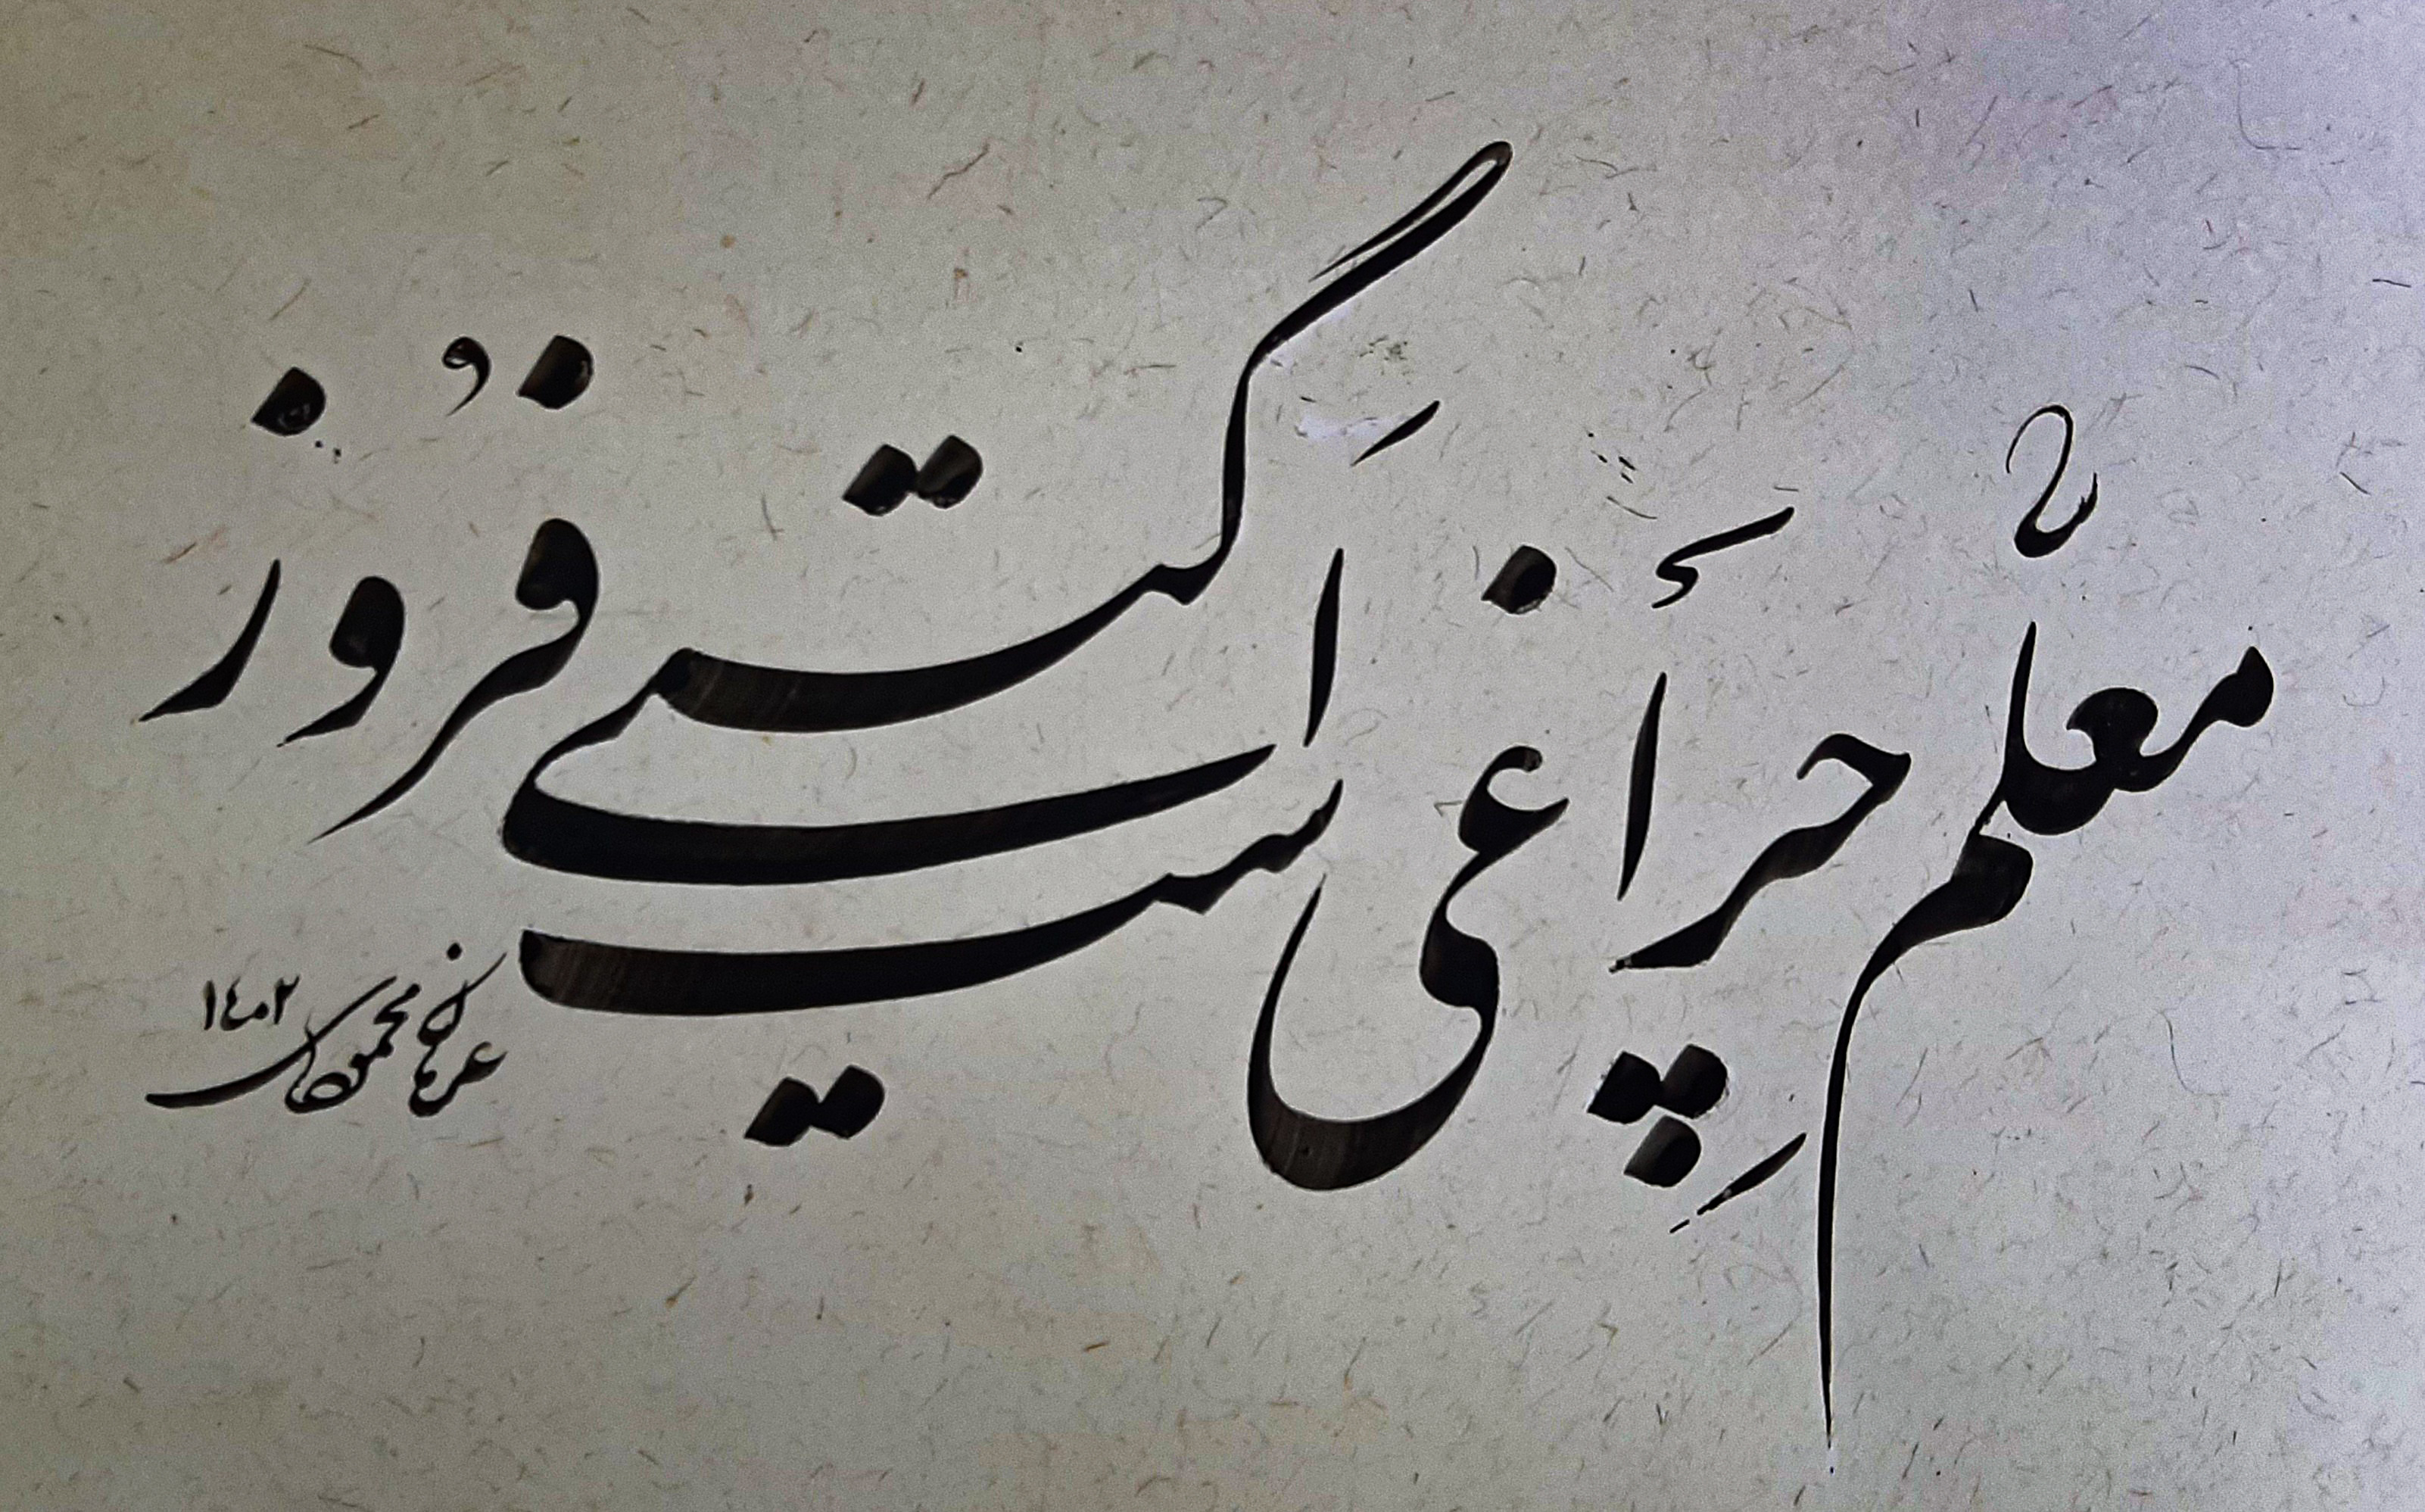 معلم چراغی است گیتی فروز
عرفان محمودی
۱۴۰۲